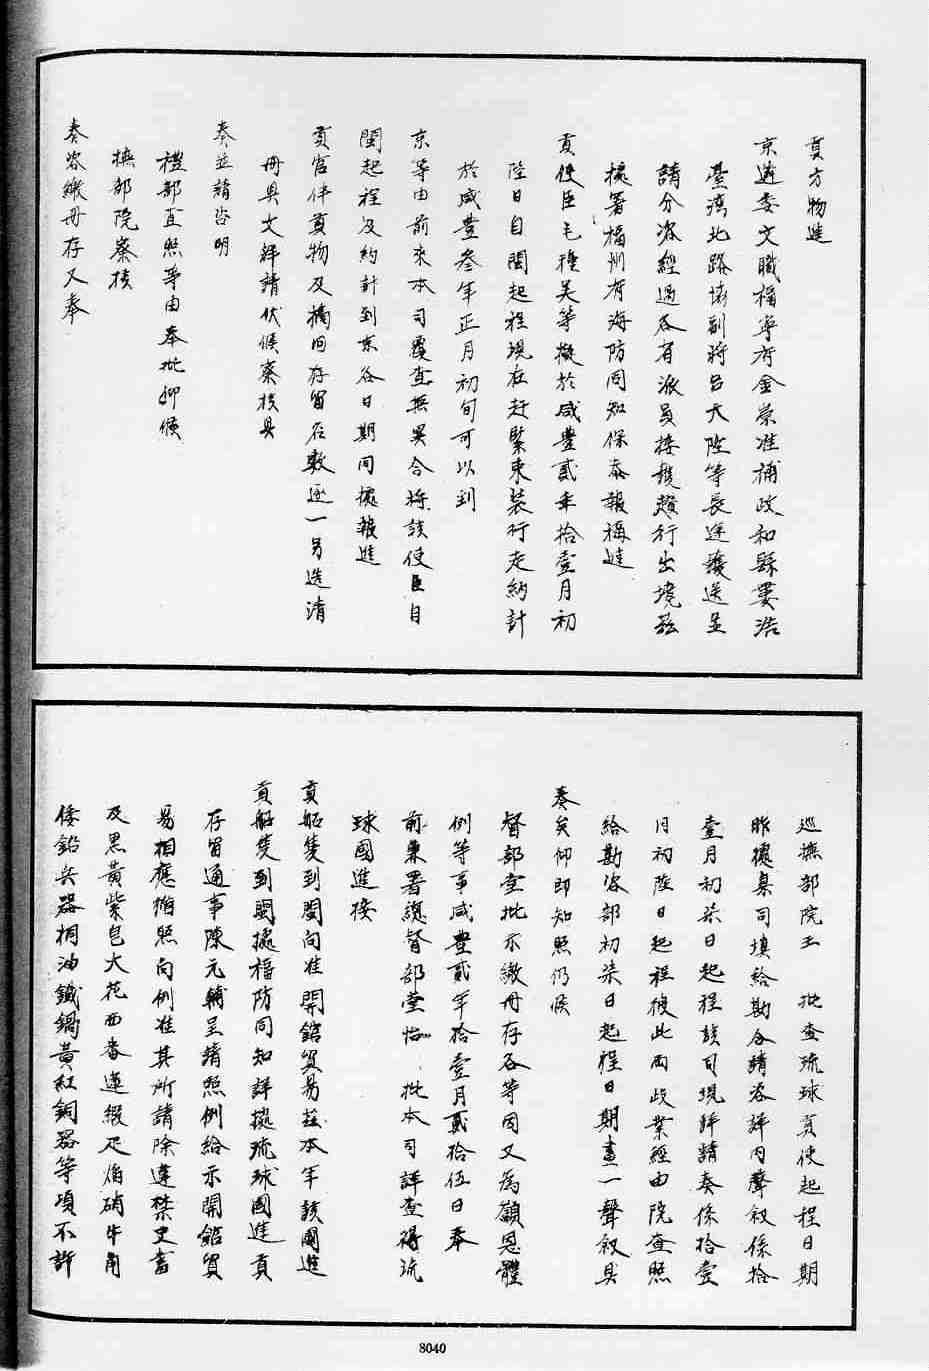 貢方物進
京遴委文職福寧府金崇准補政和縣婁浩
臺灣北路協副將呂大陞等長途護送呈
請分咨經過各省派員接護趲行出境茲
據署福州府海防同知保泰報稱進
貢使臣毛種美等擬於咸豐貳年拾壹月初
陸日自閩起程現在赶緊束裝行走約計
於咸豐叁年正月初旬可以到
京等由前來本司覆查無異合將該使臣自
閩起程及約計到京各日期同據報進
貢官伴貢物及摘回存留名數逐一另造清
冊具文詳請伏候察核具
奏並請咨明
禮部查照等由奉批仰候
撫部院察核
奏咨繳冊存又奉
巡撫部院王 批查琉球貢使起程日期
昨據臬司填給勘合請咨詳內聲敘係拾
壹月初柒日起程該司現詳請奏係拾壹
月初陸日起程彼此兩歧業經由院查照
給勘咨部初柒日起程日期畫一聲敘具
奏矣仰即知照仍候
督部堂批示繳冊存各等因又為籲恩體
例等事咸豐貳年拾壹月貳拾伍日奉
前兼署總督部堂怡 批本司詳查得流
球國進接
貢船隻到閩向准開館貿易茲本年該國進
貢船隻到閩據福防同知詳據琉球國進貢
存留通事陳元輔呈請照例給示開館貿
易相應循照向例准其所請除違禁史書
及黑黃紫皂大花西番蓮緞疋焰硝牛角
倭鉛兵器桐油鐵鍋黃紅銅器等項不許
8040